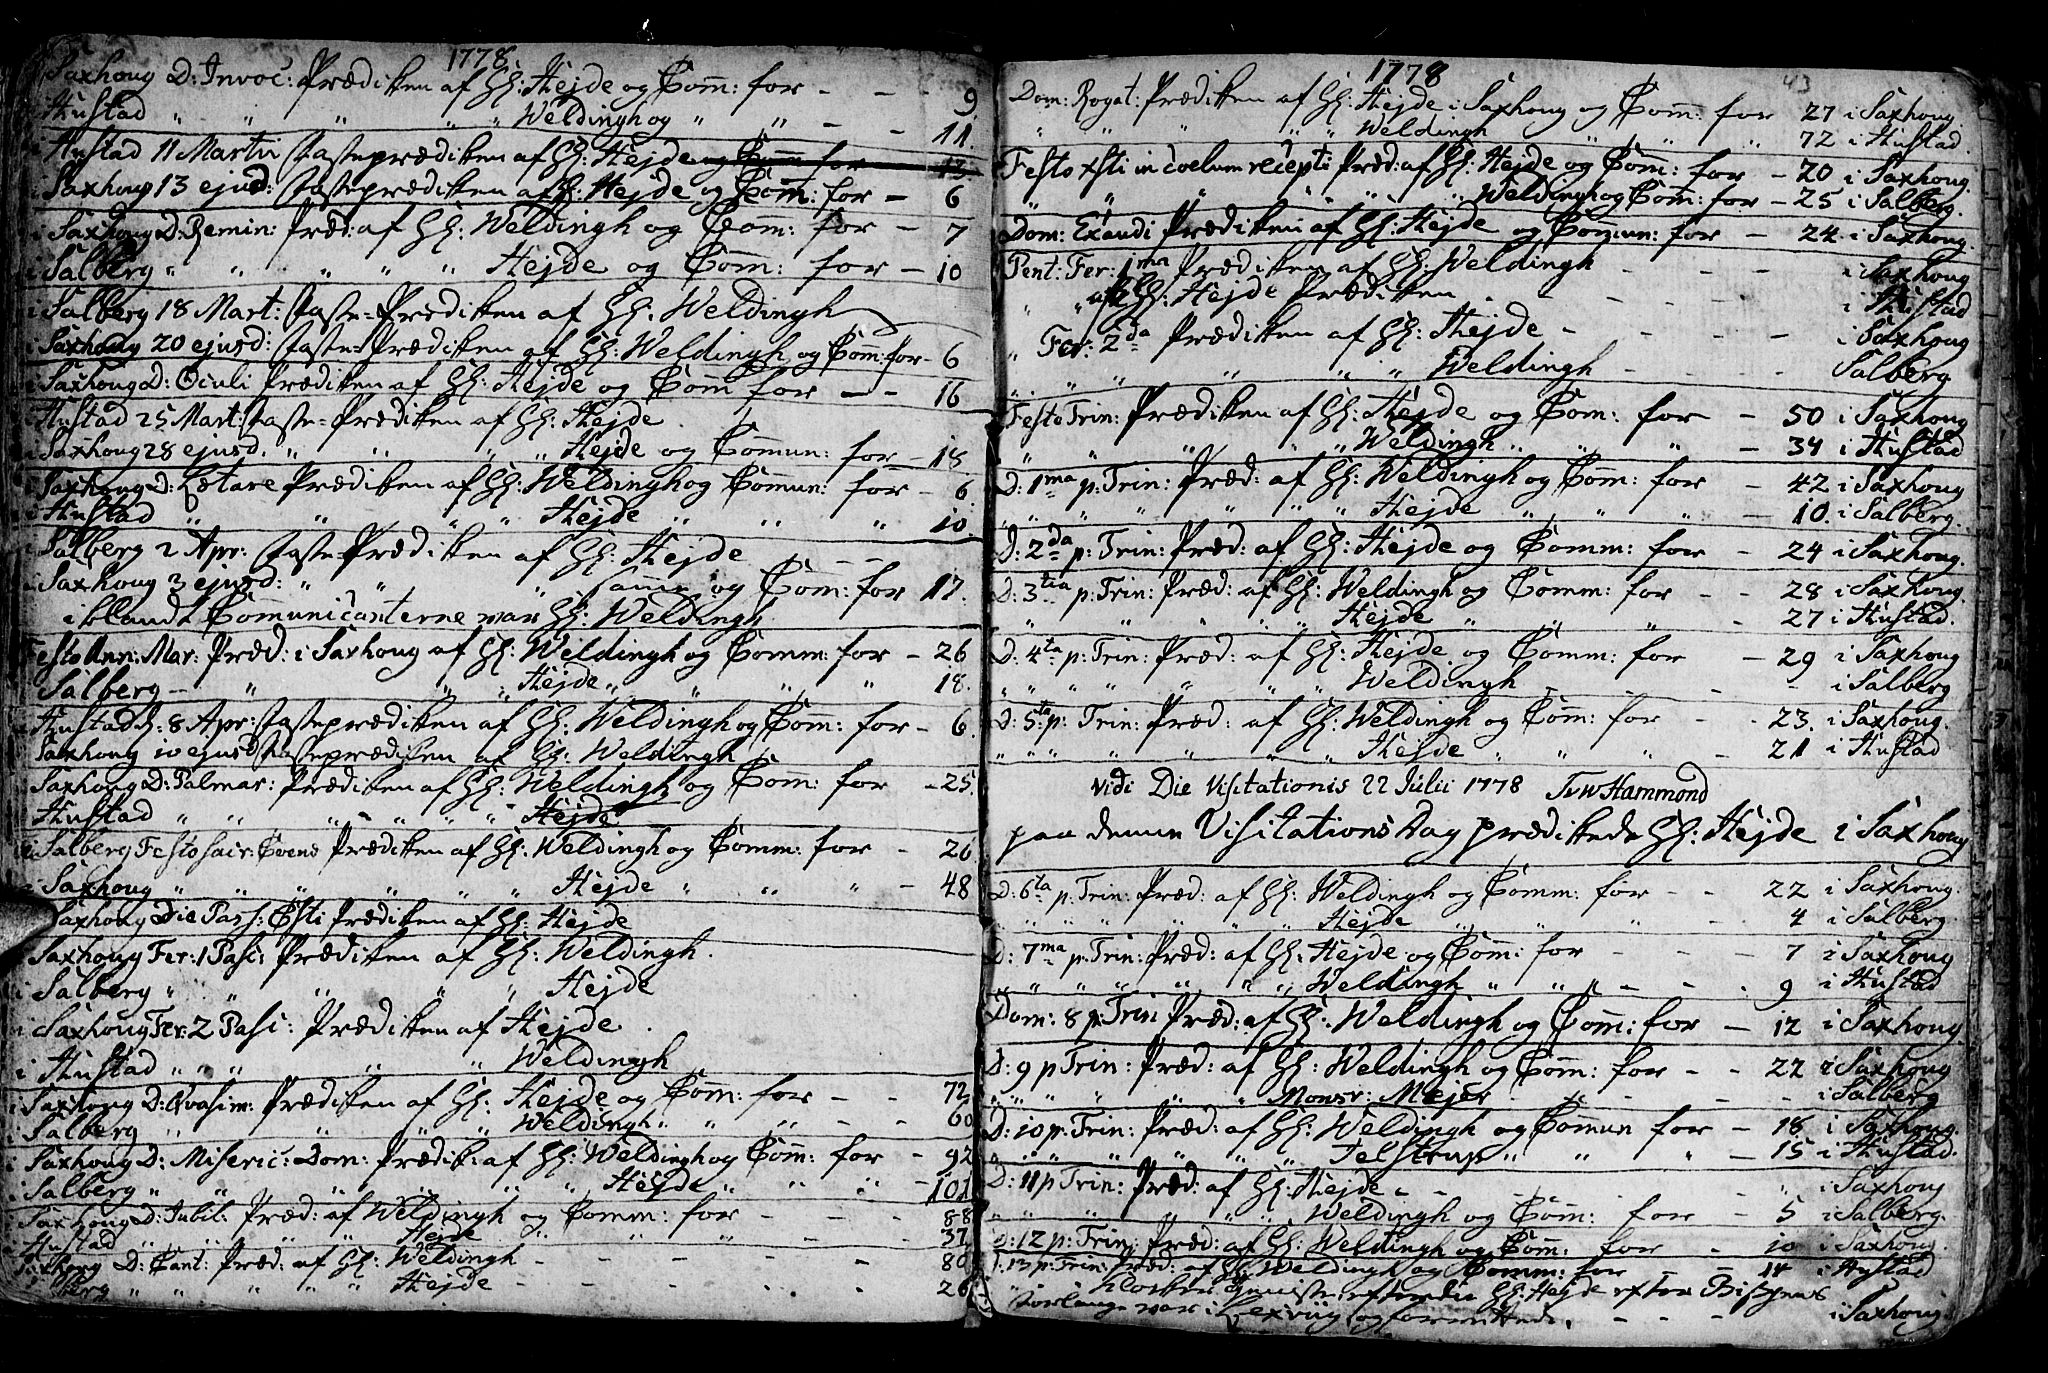 1778
i Saxhoug D: Invoc: Prædiken af Hr: Hejde og Com̄: for - - - 9
i Hustad " " " " " Weldingh og " " - - 11.
i Hustad 11 Martii fasteprædiken af Hr: Hejde og Com̄ for 13
i Saxhoug 13 ejusd: fasteprædiken af Hr: Hejde og Com̄: for - 6
i Saxhoug D: Remin: Præd: af Hr: Weldingh og Com̄: for - 7
i Salberg " " " " " Hejde og Com̄: for - 10
i Salberg 18 Mart: faste-Prædiken af Hr. Weldingh
i Saxhoug 20 ejusd: faste-Prædiken af Hr: Weldingh og Com̄: for - 6
i Saxhoug D: Oculi Prædiken af Hr: Hejde og Com̄ for - - 16
i Hustad 25 Mart: faste-Prædiken af Hr: Hejde.
i Saxhoug 28 ejusd. " " " " Hejde og Com̄un: for - 18
i Saxhoug D: Lætare Prædiken af Hr: Weldingh og Com̄un: for - 6
i Hustad " " " " Hejde " " " 10.
i Salberg 2 Apr: faste-Prædiken af Hr: Hejde - -
i Saxhoug 3 ejusd: " " " samme og Com̄: for 17.
iblandt Com̄unicanterne var Hr: Weldingh.
Festo Ann: Mar: Præd: i Saxhoug af Hr: Weldingh og Comm: for - 26
Salberg - " " " Hejde " " " 18.
i Hustad d: 8 Apr: fasteprædiken af Hr: Weldingh og Com̄: for - 6.
Saxhoug 10 ejusd fasteprædiken af Hr: Weldingh
Saxhoug D: Palmar: Prædiken af Hr: Weldingh og Com̄: for - 25
i Hustad " " " " " " Hejde
i Salberg Festo sacr: Coenæ Prædiken af Hr: Weldingh og Comm: for - 26
i Saxhoug " " " " " Hejde " " " - 48
Saxhoug Die Pass: Xsti Prædiken af Hr: Hejde
Saxhoug Fer: 1 Pasc: Prædiken af Hr: Weldingh.
i Salberg " " " " " Hejde
i Saxhoug Fer: 2 Pasc: Prædiken af Hejde.
i Hustad " " " " " Weldingh
i Saxhoug D: Qvasim: Prædiken af Hr: Hejde og Com̄: for - - 72
i Salberg " " " " Weldingh " " " - - 60
i Saxhoug D: Miseric: Dom: Prædik: af Hr: Weldingh og Com̄: for - 92
i Salberg " " " " " Hejde " " " - 101
i Saxhoug D: Jubil: Præd: af Weldingh og Comm: for - - - 88
i Hustad " " " " Hejde " " " " - 37
i Saxhoug D: Cant: Præd: af Hr: Weldingh - - - - - 80
i Salberg " " " " " Hejde - - - - 26
1778
43
Dom: Rogat: Prædiken af Hr: Hejde i Saxhoug og Com̄: for 27 i Saxhoug.
" " " " " Weldingh " " " 72 i Hustad.
Festo Xsti in coelum recepti Præd: af Hr: Hejde og Com̄: for - 20 i Saxhoug.
" " " " " Weldingh og Com̄: for - 25 i Salberg.
Dom: Exaudi Prædiken af Hr: Hejde og Com̄un: for - 24 i Saxhoug.
Pent: Fer: 1ma Prædiken af Hr: Weldingh - - - i Saxhoug
" " af Hr: Hejde Prædiken - - - - i Hustad
" Fer: 2da Prædiken af Hr: Hejde - - - - i Saxhoug
" " " " " " Weldingh - - - - Salberg
Festo Trin: Prædiken af Hr: Hejde og Com̄: for - 50 i Saxhoug
" " " " " Weldingh " " " - 34 i Hustad
D: 1ma p: Trin: Præd: af Hr: Weldingh og Com̄: for - 42 i Saxhoug
" " " " " " Hejde " " " - 10. i Salberg.
D: 2da p: Trin: Præd: af Hr: Hejde og Comm: for - 24 i Saxhoug.
D: 3tia p: Trin: Præd: af Hr: Weldingh og Comm: for - - 28 i Saxhoug.
" " " " " Hejde " " " - - 27 i Hustad.
D: 4ta p: Trin: Præd: af Hr: Hejde og Comm: for - 29 i Saxhoug
" " " " " " Weldingh - - - - i Salberg
D: 5ta p: Trin: Præd: af Hr: Weldingh og Com̄: for - - 23. i Saxhoug.
" " " " " " Hejde " " " - 21 i Hustad
Vidi Die Visitationis 22 Julii 1778 TvW Hammond
paa denne Visitations Dag prædikede Hr: Hejde i Saxhoug
D: 6ta p: Trin: Præd: af Hr: Weldingh og Comm: for - - 22 i Saxhoug.
" " " " " " Hejde " " " - 4 i Salberg.
D: 7ma p: Trin: Præd: af Hr: Hejde og Com̄: for - - - 7 i Saxhoug
" " " " " " Weldingh " " " - - 9 i Hustad
Dom: 8 p: Trin Præd: af Hr: Weldingh og Com̄: for - 12 i Saxhoug
D: 9 p Trin: Præd: af Hr: Weldingh og Com̄: for - - 22 i Saxhoug
" " " " " " Monsr: Mejer - - - - i Salberg
D: 10 p: Trin: Præd: af Hr: Weldingh og Com̄un for - 18 i Saxhoug.
" " " " " " Felstrup " " " - 15 i Hustad.
D: 11 p Trin: Præd: af Hr: Hejde - - - - " i Saxhoug
" " " " " Weldingh og Com̄: for - 5 i Salberg.
D: 12 p: Trin: Præd: af Hr: Weldingh og Com̄: for - 10 i Saxhoug.
D: 13 p: Trin: Præd: af Hr: Weldingh og Comm: for - - 14 i Hustad
" Klokker eftersom Hr: Hejde efter Bispens
var i Lexviig og forrettede. - - - i Saxhoug